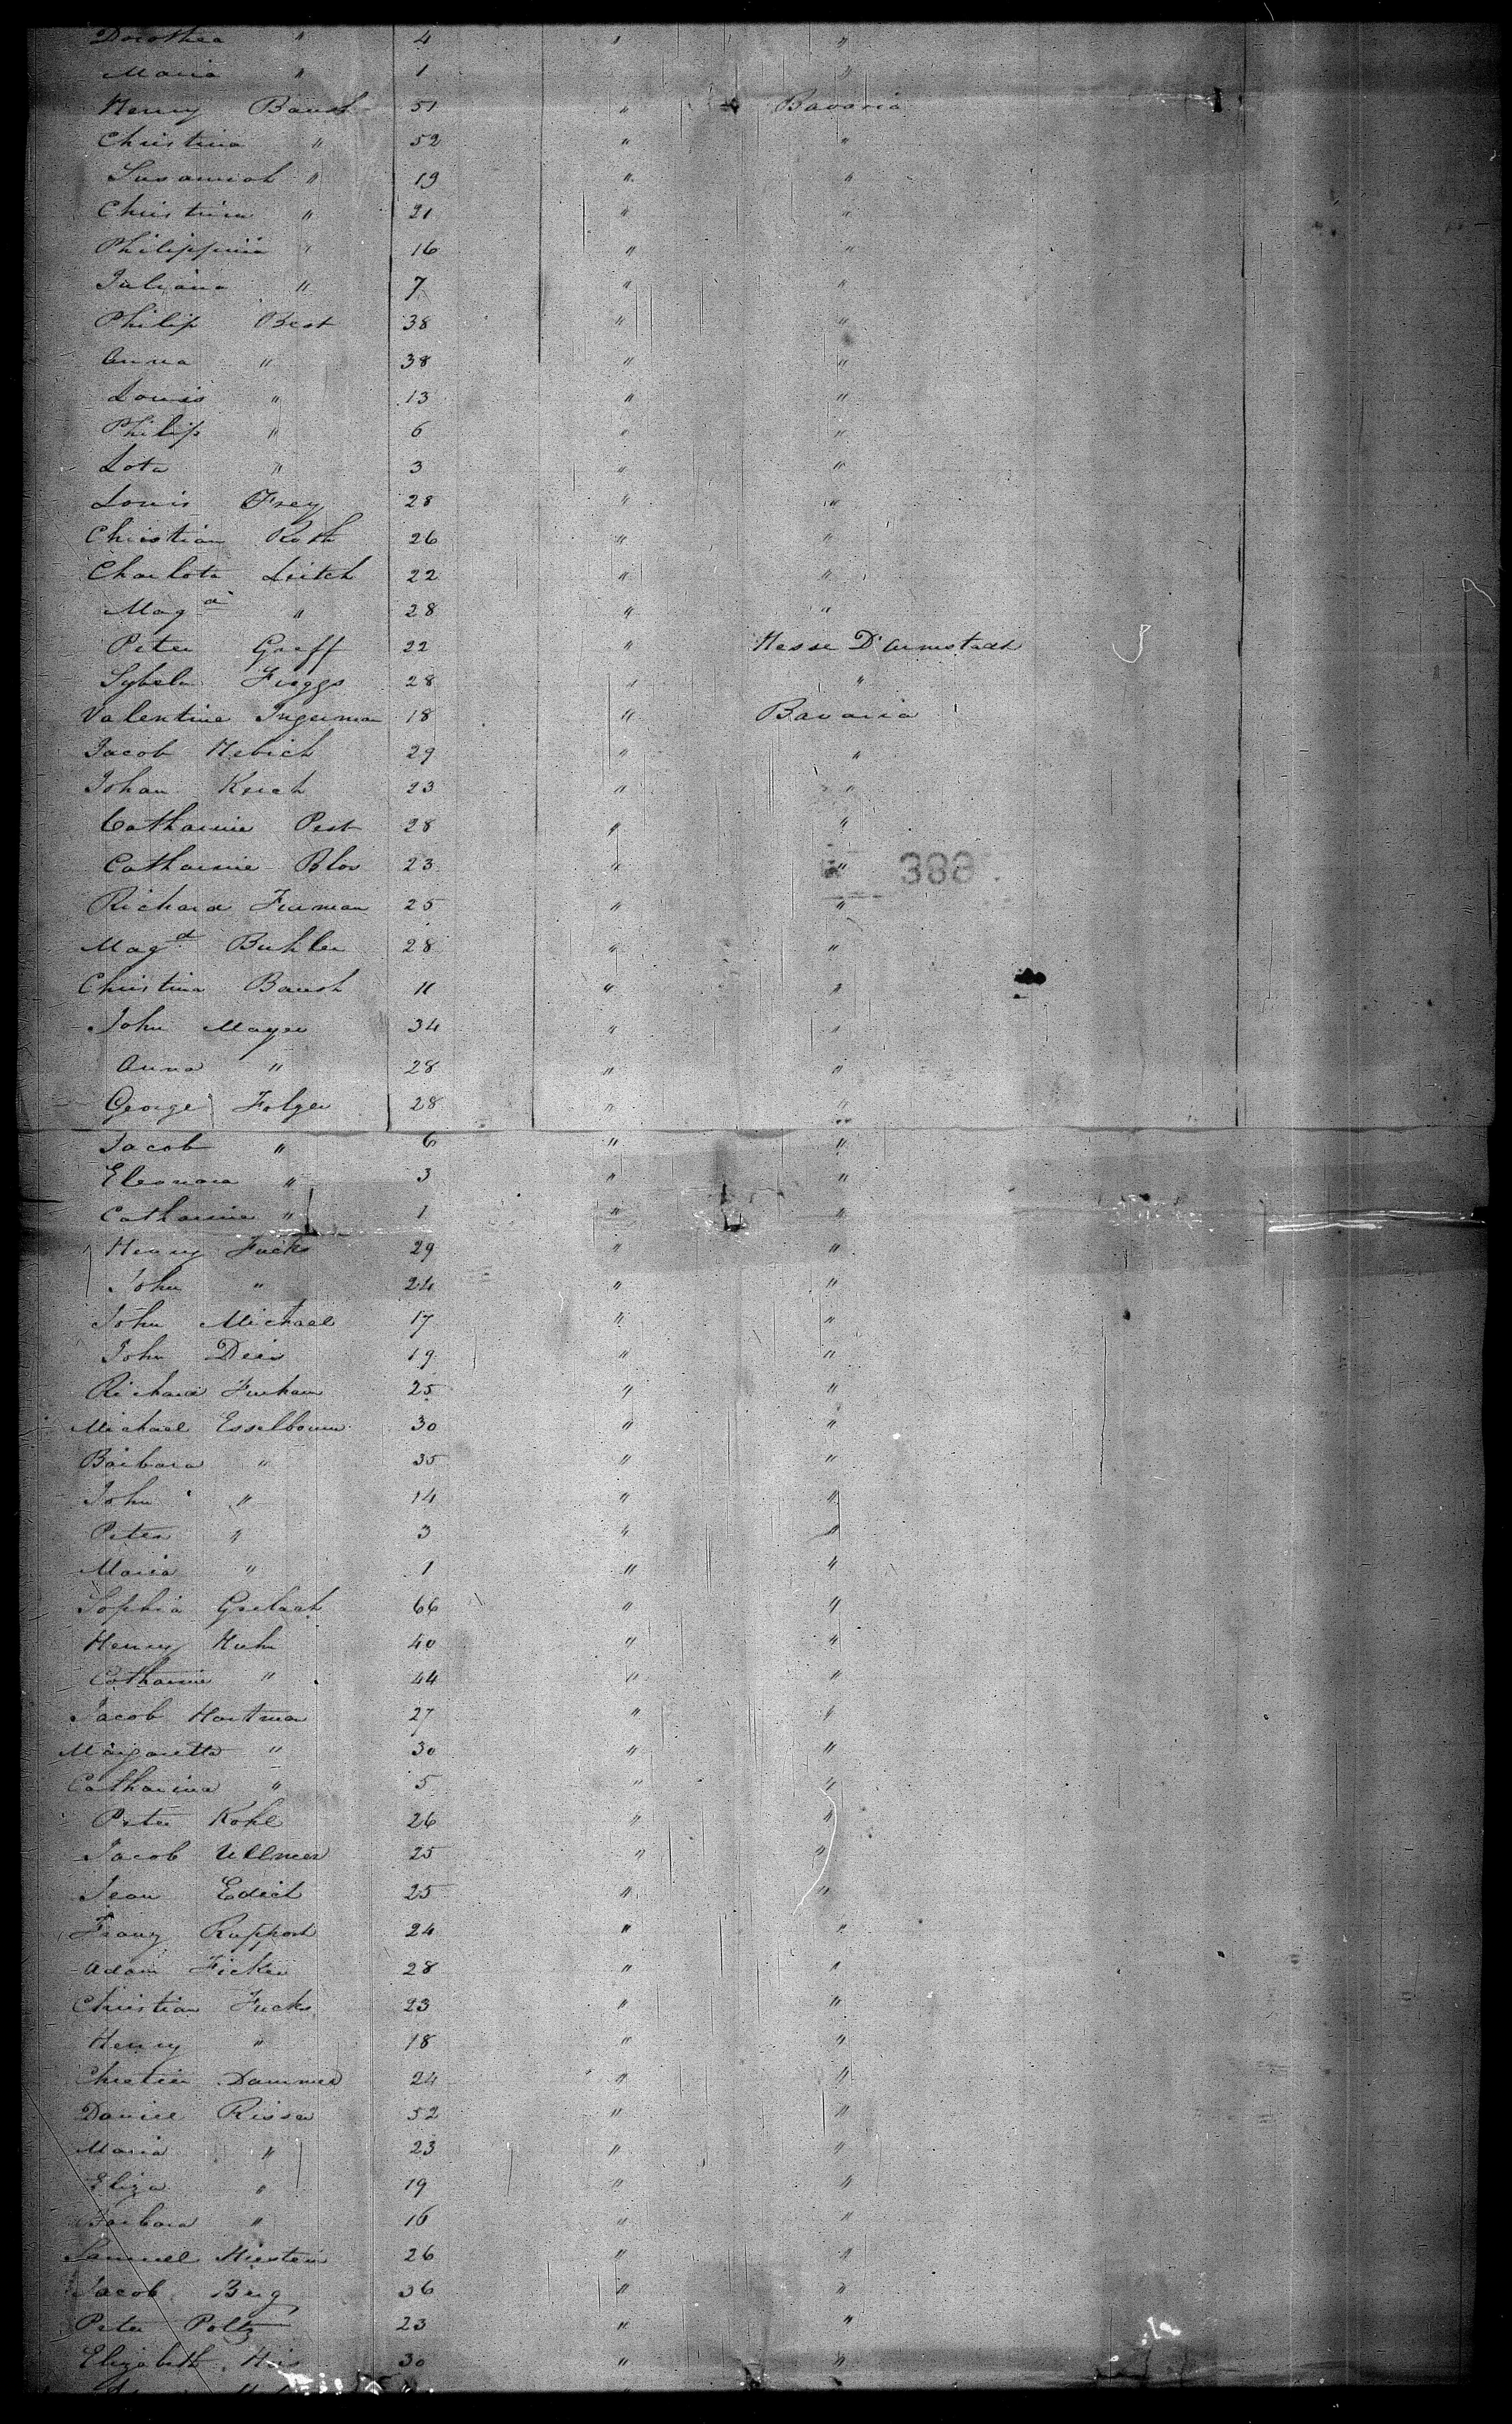 Dorothea " 4 " "
Maria " 1 "
Henry Baush 51 " Bavaria
Christina " 52 " "
Susannah " 19 " "
Christina " 21 " "
Philippina " 16 " "
Juliana " 7 " "
Philip Best 38 " "
Anna " 38 " "
Louis " 13 " "
Philip " 6 " "
Lota " 3 " "
Louis Frey 28 " "
Christian Roth 26 " "
Charlota Leitch 22 " "
Mag.a " 28 " "
Peter Graff 22 " Hesse D'armstadt
Sybela Friggs 28 " "
Valentine Ingerman 18 " Bavaria
Jacob Hebich 29 " "
Johan Krich 23 " "
Catharine Pest 28 " "
Catharine Blos 23 " "
388
Richard Furman 25 " "
Mag.d Buhler 28 " "
Christina Baush 11 " "
John Mayer 34 " "
Anna " 28 " "
George Folger 28 " "
Jacob " 6 " "
Eleonora " 3 " "
Catharine " 1 " "
Henry Fucks 29 " "
John " 24 " "
John Michael 17 " "
John Deis 19 " "
Richard Furham 25 " "
Michael Esselbourn 30 " "
Barbara " 35 " "
John " 14 " "
Peter " 3 " "
Maria " 1 " "
Sophia 66 " "
Henry Huhn 40 " "
Catharine " 44 " "
Jacob Hartman 27 " "
Margaretta " 30 " "
Catharina " 5 " "
Peter Kohl 26 " "
Jacob Ullmer 25 " "
Jean Edich 25 " "
Franz Rupport 24 " "
Adam Ficker 28 " "
Christian Fucks 23 " "
Henry " 18 " "
Chretien Dammer 24 " "
Daniel Risser 52 " "
Maria " 23 " "
Eliza " 19 " "
Barbara " 16 " "
Samuel Hirstein 26 " "
Jacob Berg 36 " "
Peter Poltz 23 " "
Elizabeth His 30 " "